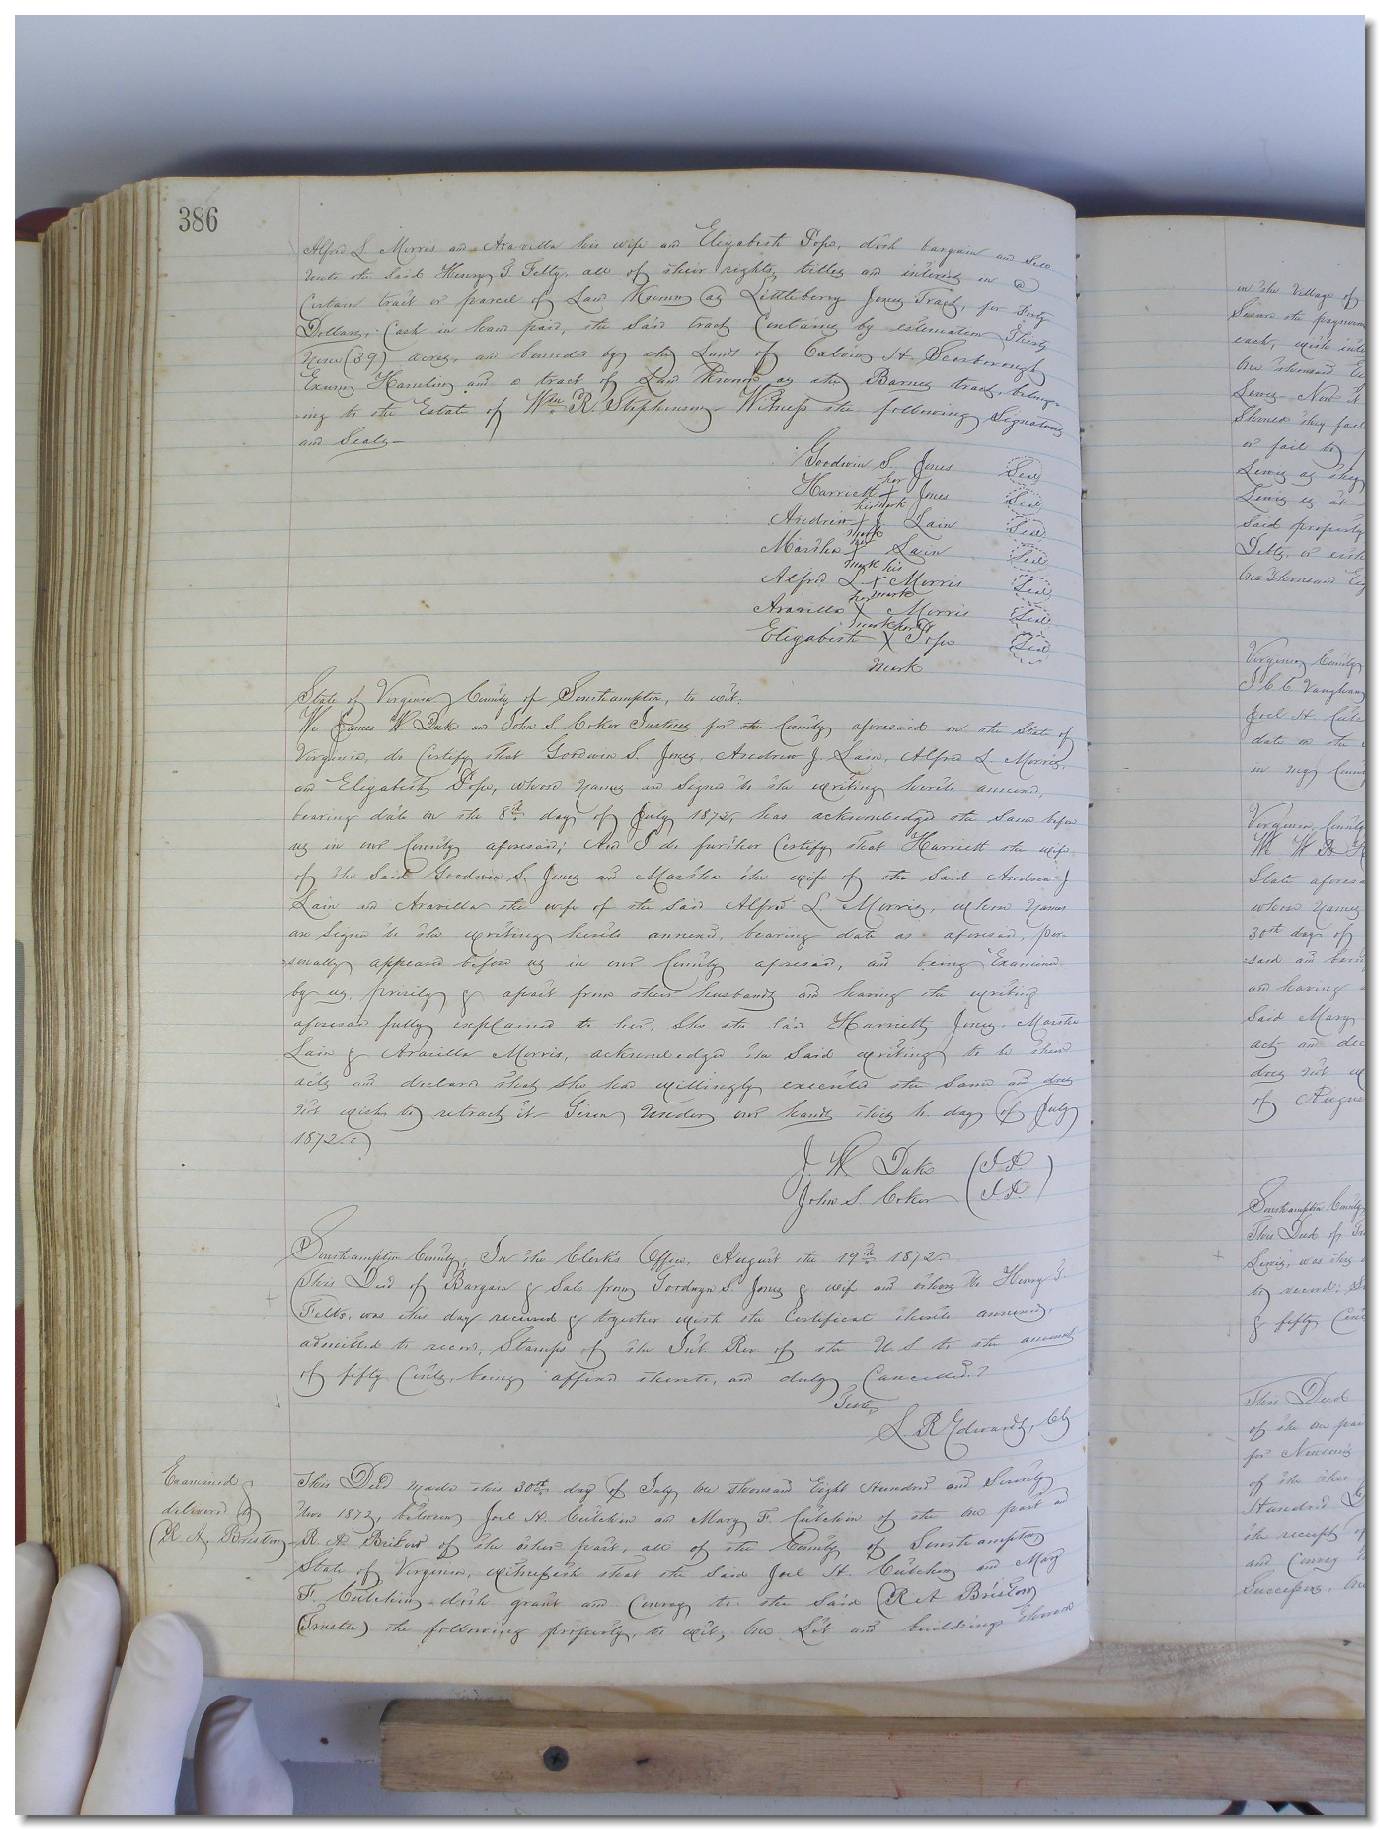 386
Alfred L Morris and Aravilla his wife and Elizabeth Pope, doth bargain and sell
unto the said Henry T. Felts, all of their rights, titles and interests in a
Certain tract or parcel of Land Known as Littleberry Jones Tract, for
Dollars, Cash in hand paid, the said tract Containing by estimation Thirty
Nine (39) acres, and bounded by the Lands of Calvin H. Scarborough
and a tract of Land Known as the Barnes tract, belong-
ing to the Estate of Wm R. Stephenson Witness the following Signatures
and Seals—
Goodwin S. Jones Seal
her
Harriett X Jones Seal
mark his
Andrew X J. Lain Seal
mark her
Martha X Lain Seal
mark his
Alfred L X Morris Seal
her mark
Aravilla X Morris Seal
mark her
Elizabeth X Pope Seal
mark
State of Virginia County of Southampton, to wit:
We James W Duke and John S. Coker Justices for the County aforesaid in the State of
Virginia, do Certify that Goodwin S. Jones, Andrew J. Lain, Alfred L. Morris,
and Elizabeth Pope, whose names are signed to the writing hereto annexed,
bearing date on the 8th day of July 1872, has acknowledged the same before
us in our County aforesaid; And I do further Certify that Harriett the wife
of the said Goodwin S. Jones and Martha the wife of the said Andrew J
Lain and Aravilla the wife of the said Alfred L. Morris, whose names
are signed to the writing hereto annexed, bearing date as aforesaid, per-
sonally appeared before us in our County aforesaid, and being Examined
by us, privily & apart from their husbands and having the writing
aforesaid fully explained to her. She the said Harriett Jones, Martha
Lain & Aravilla Morris, acknowledged the said writing to be their
acts and declared that she had willingly executed the same and does
not wish to retract it Given under our hands this day of July
1872
J. W Duke (J.P.)
John S. Coker (J.P.)
Southampton County, In the Clerk's Office, August the 19th 1872.
This Deed of Bargain & Sale from Goodwyn S. Jones & wife and others to Henry T.
Felts, was this day received & together with the Certificate thereto annexed,
admitted to record, Stamps of the Int. Rev of the U.S. to the amount
of fifty Cents, being affixed thereto, and duly Cancelled.
Teste,
L. R Edwards, Clk
Examined &
delivered to
R. A. Bristow
This Deed made this 30th day of July One thousand Eight Hundred and Seventy
two 1872, between Joel H. Cutchin and Mary F. Cutchin of the one part and
R. A. Bristow of the other part, all of the County of Southampton
State of Virginia, witnesseth that the said Joel H. Cutchin and Mary
F. Cutchin doth grant and Convey to the said R A Bristow
(Trustee) the following property, to wit, One Lot and buildings thereon
in the Village of
each, with
One thousand
Lewis Now
Should they fail
or fail to
Lewis as they
Lewis
said property
Debt, or
One Thousand
Virginia County
J. C. C. Vaughan
Joel H.
date on the
in my County
Virginia, County
State
whose names
30th day of
said and
and having
said Mary
act and
does not
of August
Southampton County
This Deed of
Lewis, was this
to record;
& fifty
This Deed
of the one
for
of the
Hundred
the receipt of
and Convey